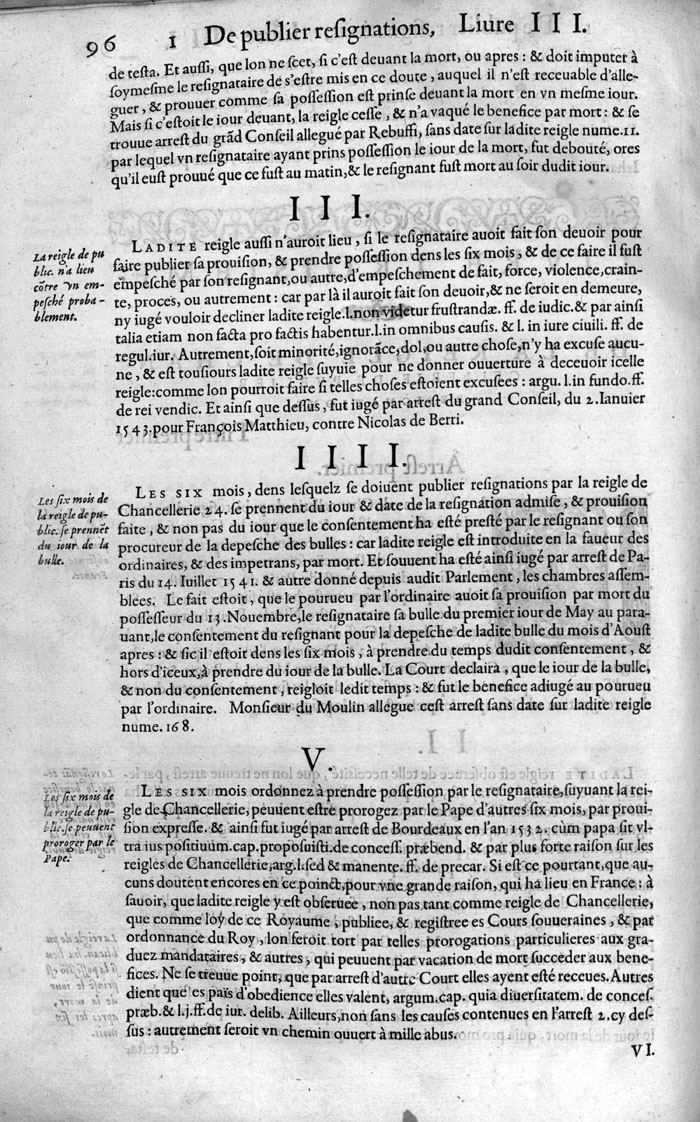 96 1 De publier resignations, Liure III.
de testa. Et aussi, que lon ne scet, si c'est deuant la mort, ou apres : & doit imputer à
soymesme le resignataire de s'estre mis en ce doute, auquel il n'est receuable d'alle-
guer, & prouuer comme sa possession est prinse deuant la mort en vn mesme iour.
Mais si c'estoit le iour deuant, la reigle cesse, & n'a vaqué le benefice par mort : & se
trouue arrest du grãd Conseil allegué par Rebuffi, sans date sur ladite reigle nume.11.
par lequel vn resignataire ayant prins possession le iour de la mort, fut debouté, ores
qu'il eust prouué que ce fust au matin, & le resignant fust mort au soir dudit iour.
III.
La reigle de pu
blic. n'a lieu
cõtre vn em-
pesché proba-
blement.
LADITE reigle aussi n'auroit lieu, si le resignataire auoit fait son deuoir pour
faire publier sa prouision, & prendre possession dens les six mois, & de ce faire il fust
empesché par son resignant, ou autre, d'empeschement de fait, force, violence, crain-
te, proces, ou autrement : car par là il auroit fait son deuoir, & ne seroit en demeure,
ny iugé vouloir decliner ladite reigle.l.non videtur frustrandæ. ff. de iudic. & par ainsi
talia etiam non facta pro factis habentur.l.in omnibus causis. & l. in iure ciuili. ff. de
regul.iur. Autrement, soit minorité, ignorãce, dol, ou autre chose, n'y ha excuse aucu-
ne, & est tousiours ladite reigle suyuie pour ne donner ouuerture à deceuoir icelle
reigle: comme lon pourroit faire si telles choses estoient excusees : argu. l.in fundo.ff.
de rei vendic. Et ainsi que dessus, fut iugé par arrest du grand Conseil, du 2. Ianuier
1543. pour François Matthieu, contre Nicolas de Berri.
IIII.
Les six mois de
la reigle de pu-
blic. se prennẽt
du iour de la
bulle.
LES SIX mois, dens lesquelz se doiuent publier resignations par la reigle de
Chancellerie 24. se prennent du iour & date de la resignation admise, & prouision
faite, & non pas du iour que le consentement ha esté presté par le resignant ou son
procureur de la depesche des bulles : car ladite reigle est introduite en la faueur des
ordinaires, & des impetrans, par mort. Et souuent ha esté ainsi iugé par arrest de Pa-
ris du 14. Iuillet 1541. & autre donné depuis audit Parlement, les chambres assem-
blees. Le fait estoit, que le pourueu par l'ordinaire auoit sa prouision par mort du
possesseur du 13. Nouembre, le resignataire sa bulle du premier iour de May au para-
uant, le consentement du resignant pour la depesche de ladite bulle du mois d'Aoust
apres : & sic il estoit dens les six mois, à prendre du temps dudit consentement, &
hors d'iceux, à prendre du iour de la bulle. La Court declaira, que le iour de la bulle,
& non du consentement, reigloit ledit temps : & fut le benefice adiugé au pourueu
par l'ordinaire. Monsieur du Moulin allegue cest arrest sans date sur ladite reigle
nume. 168.
V.
Les six mois de
la reigle de pu-
blic. se peuuent
proroger par le
Pape.
LES SIX mois ordonnez à prendre possession par le resignataire, suyuant la rei-
gle de Chancellerie, peuuent estre prorogez par le Pape d'autres six mois, par proui-
sion expresse. & ainsi fut iugé par arrest de Bourdeaux en l'an 1532. cùm papa sit vl-
tra ius positiuum.cap.proposuisti.de concess. præbend. & par plus forte raison sur les
reigles de Chancellerie, arg.l.sed & manente. ff. de precar. Si est ce pourtant, que au-
cuns doutent encores en ce poinct, pour vne grande raison, qui ha lieu en France : à
sauoir, que ladite reigle y est obseruee, non pas tant comme reigle de Chancellerie,
que comme loy de ce Royaume, publiee, & registree es Cours souueraines, & par
ordonnance du Roy, lon feroit tort par telles prorogations particulieres aux gra-
duez mandataires, & autres, qui peuuent par vacation de mort succeder aux bene-
fices. Ne se treuue point, que par arrest d'autre Court elles ayent esté receues. Autres
dient que es païs d'obedience elles valent, argum.cap. quia diuersitatem. de conces.
præb. & l.j.ff. de iur. delib. Ailleurs, non sans les causes contenues en l'arrest 2. cy des-
sus : autrement seroit vn chemin ouuert à mille abus.
VI.